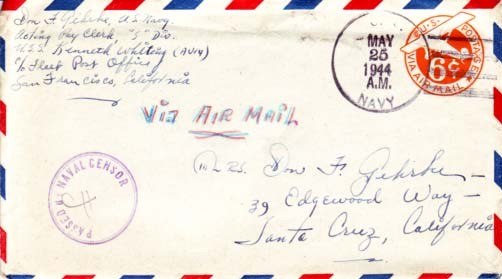 Don F. Gehrke, U.S. Navy.
Acting Pay Clerk, "S" Div.
U.S.S. Kenneth Whiting (AV14)
c/o Fleet Post Office
San Francisco, California
U.S.
MAY
25
1944
A.M.
NAVY
U.S. POSTAGE
6¢
VIA AIR MAIL
Via AIR MAIL
PASSED BY NAVAL CENSOR
Mrs. Don F. Gehrke —
39 Edgewood Way —
Santa Cruz, California